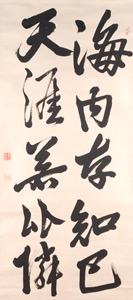 海内存知己
天涯若比隣